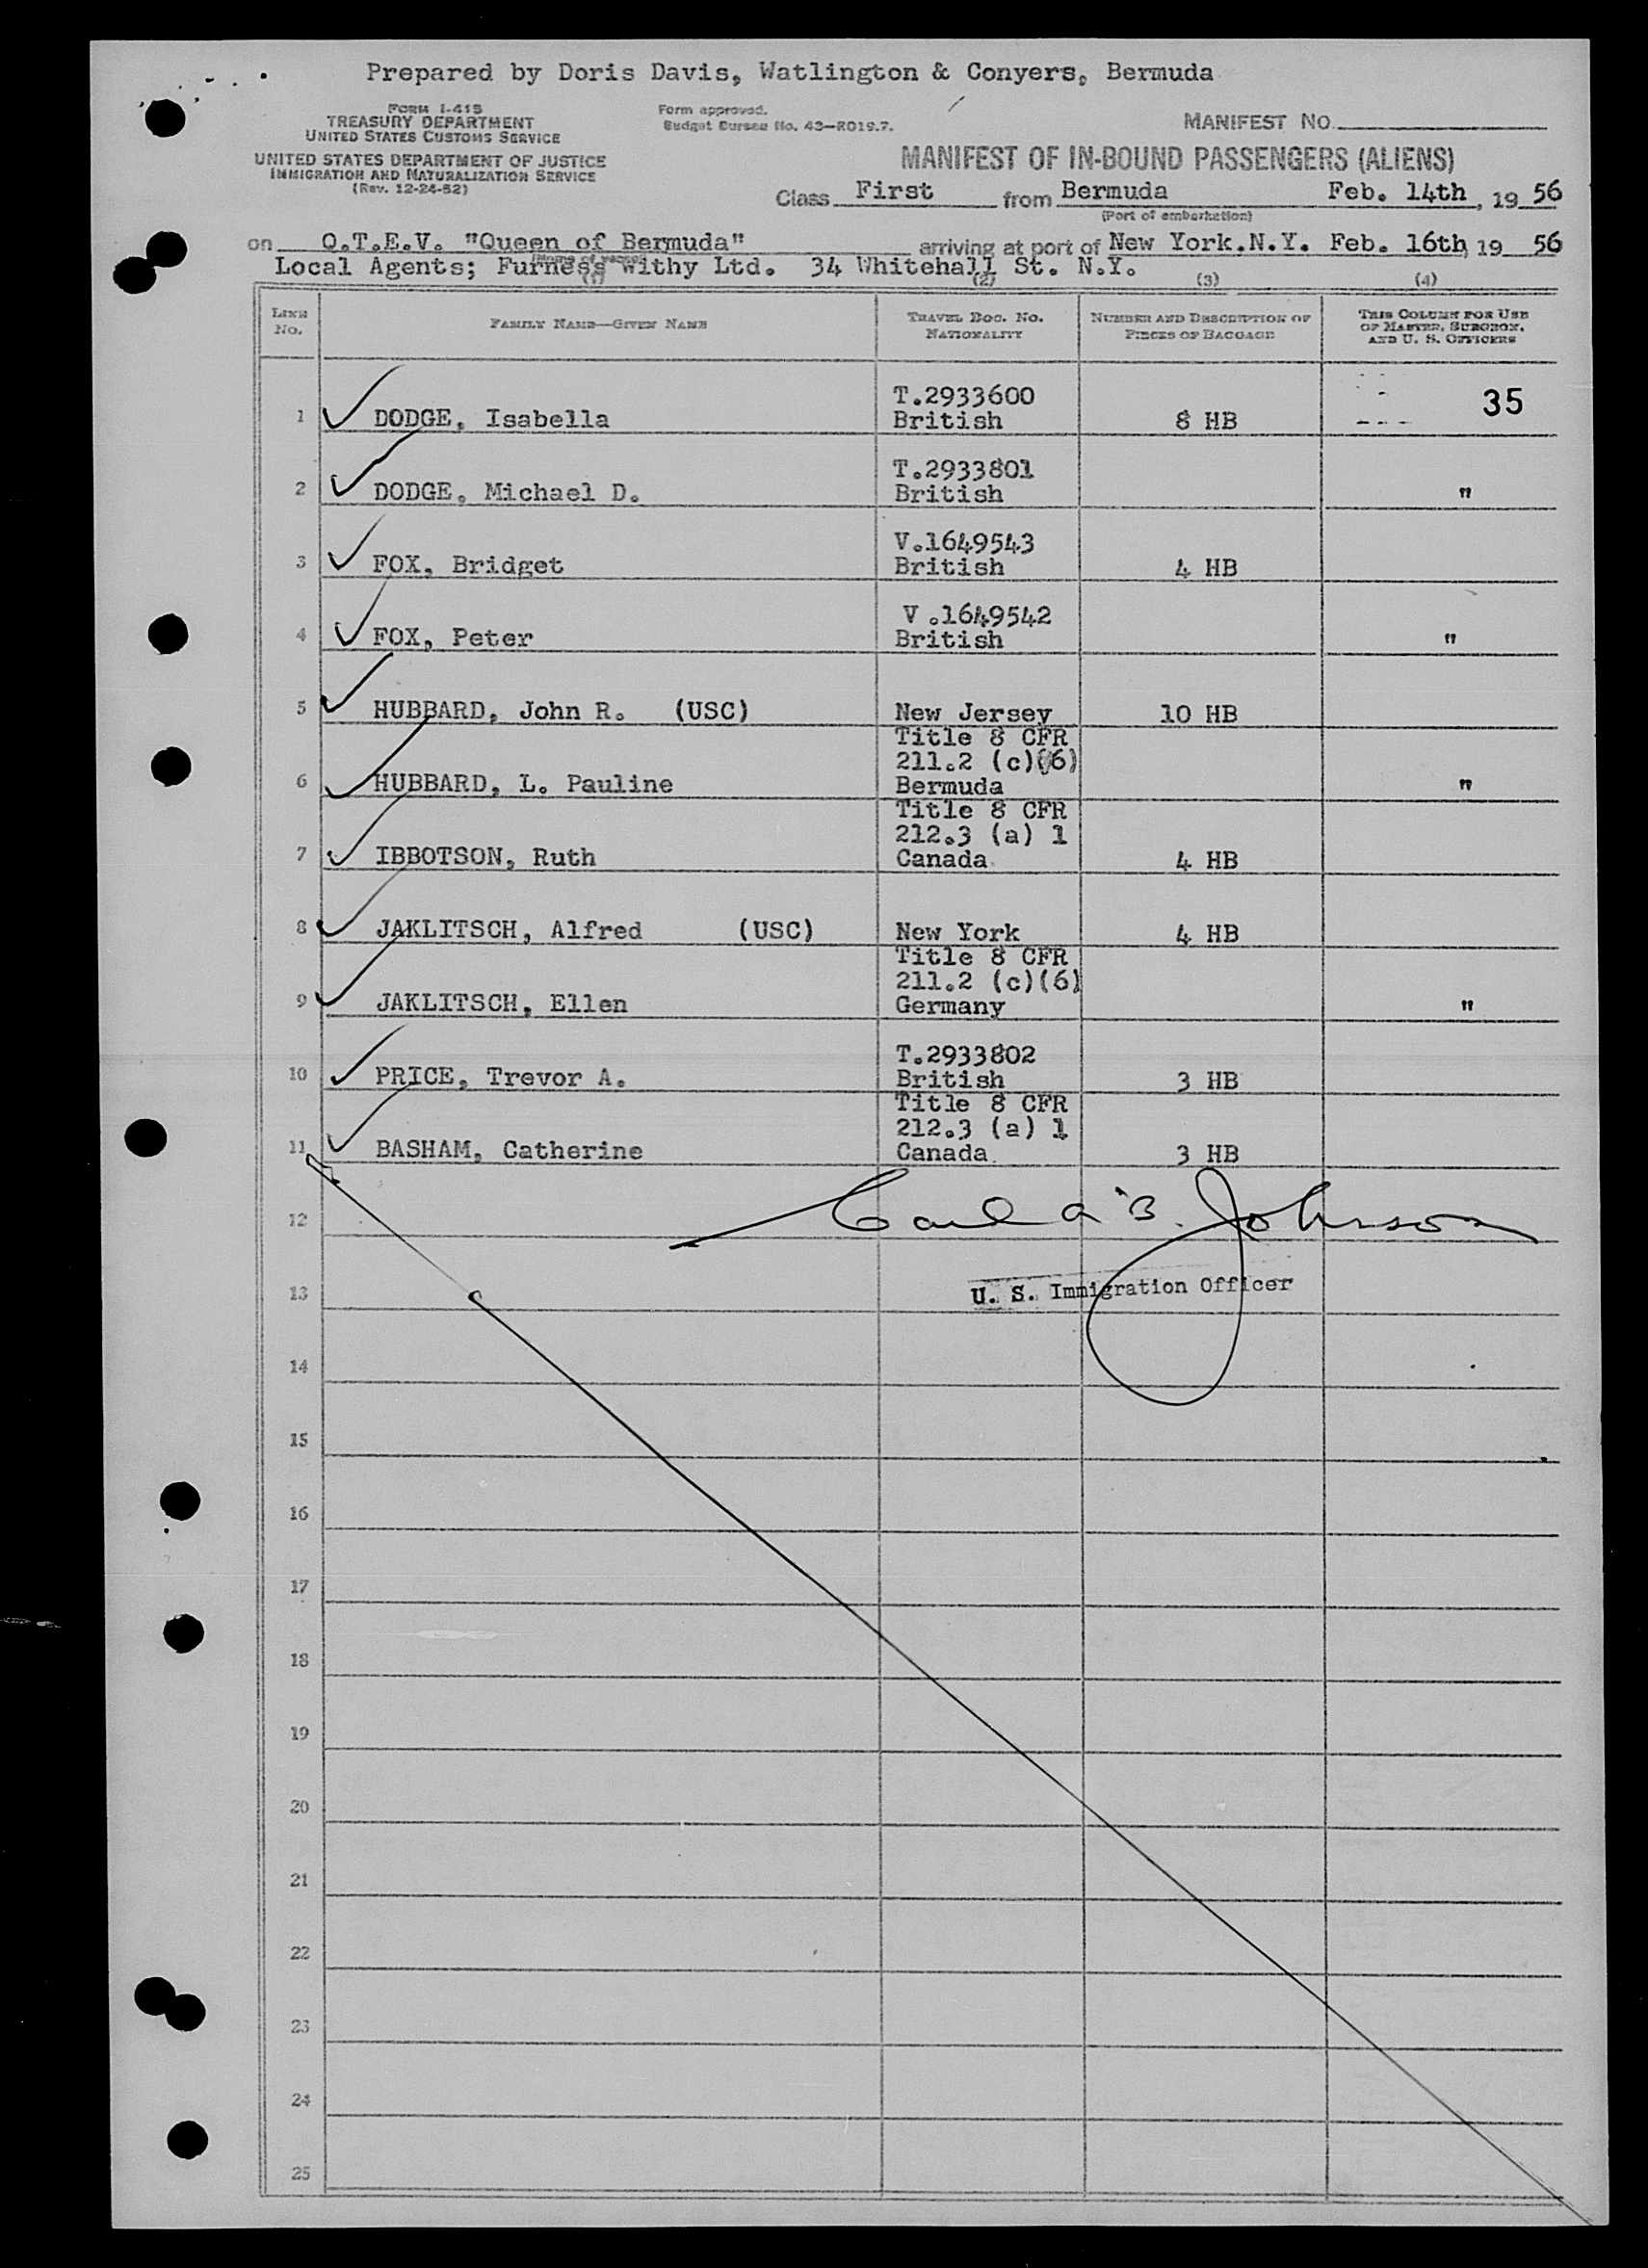 Prepared by Doris Davis, Watlington & Conyers, Bermuda
FORM I-415
TREASURY DEPARTMENT
UNITED STATES CUSTOMS SERVICE
UNITED STATES DEPARTMENT OF JUSTICE
IMMIGRATION AND NATURALIZATION SERVICE
(Rev. 12-24-52)
Form approved.
Budget Bureau No. 43—R019.7.
MANIFEST NO.
MANIFEST OF IN-BOUND PASSENGERS (ALIENS)
Class First from Bermuda Feb. 14th, 1956
(Port of embarkation)
on Q.T.E.V. "Queen of Bermuda" arriving at port of New York.N.Y. Feb. 16th, 1956
(Name of vessel)
Local Agents; Furness Withy Ltd. 34 Whitehall St. N.Y.
(1) (2) (3) (4)
LINE NO. FAMILY NAME—GIVEN NAME TRAVEL DOC. NO. NATIONALITY NUMBER AND DESCRIPTION OF PIECES OF BAGGAGE THIS COLUMN FOR USE OF MASTER, SURGEON, AND U. S. OFFICERS
T.2933600 35
1 DODGE, Isabella British 8 HB
T.2933801
2 DODGE, Michael D. British "
V.1649543
3 FOX, Bridget British 4 HB
V .1649542
4 FOX, Peter British "
5 HUBBARD, John R. (USC) New Jersey 10 HB
Title 8 CFR
211.2 (c)(6)
6 HUBBARD, L. Pauline Bermuda "
Title 8 CFR
212.3 (a) 1
7 IBBOTSON, Ruth Canada 4 HB
8 JAKLITSCH, Alfred (USC) New York 4 HB
Title 8 CFR
211.2 (c)(6)
9 JAKLITSCH, Ellen Germany "
T.2933802
10 PRICE, Trevor A. British 3 HB
Title 8 CFR
212.3 (a) 1
11 BASHAM, Catherine Canada 3 HB
12 Johnson
13 U. S. Immigration Officer
14
15
16
17
18
19
20
21
22
23
24
25